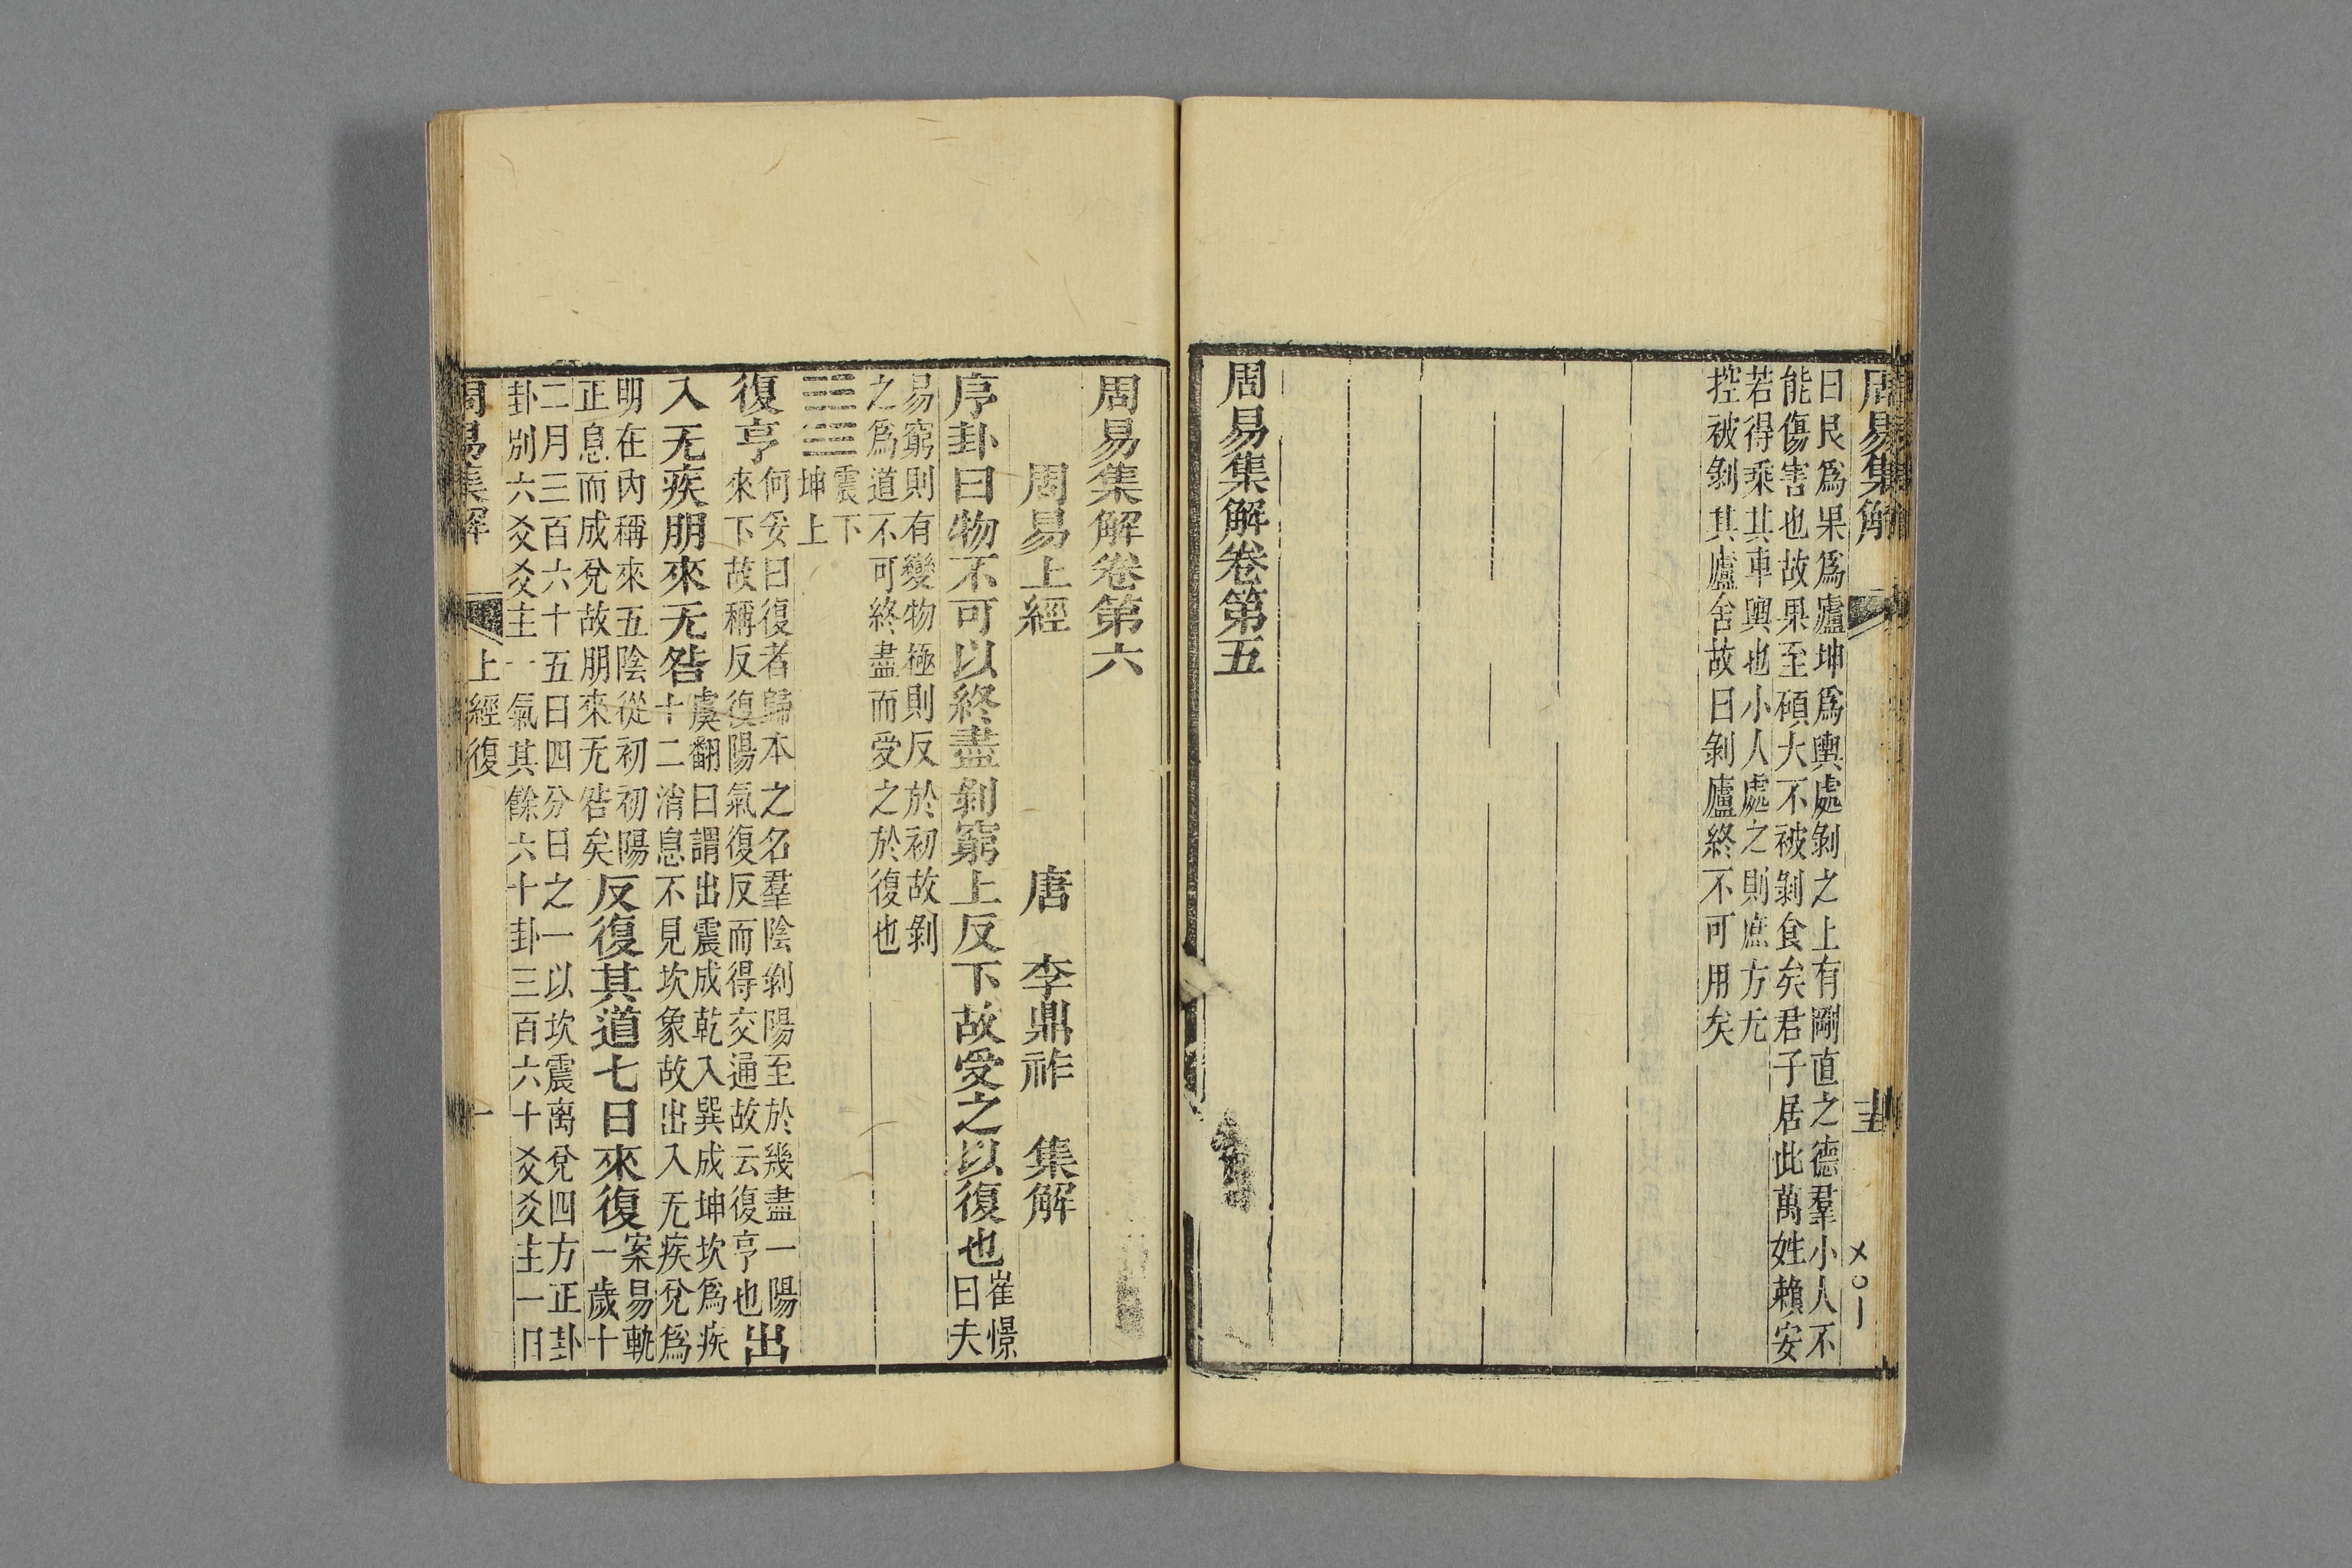 周易集解
曰艮爲果爲廬坤爲輿處剝之上有剛直之德羣小人不
能傷害也故果至碩大不被剝食矣君子居此萬姓賴安
若得乘其車輿也小人處之則庶方无
控被剝其廬舍故曰剝廬終不可用矣
周易集解卷第五
周易集解卷第六
周易上經 唐 李鼎祚 集解
序卦曰物不可以終盡剝窮上反下故受之以復也崔憬
曰夫
易窮則有變物極則反於初故剝
之爲道不可終盡而受之於復也
震下
坤上
復亨何妥曰復者歸本之名羣陰剝陽至於幾盡一陽
來下故稱反復陽氣復反而得交通故云復亨也出
入无疾朋來无咎虞翻曰謂出震成乾入巽成坤坎爲疾
十二消息不見坎象故出入无疾兌爲
明在內稱來五陰從初初陽
正息而成兌故朋來无咎矣反復其道七日來復案易軌
一歲十
二月三百六十五日四分日之一以坎震离兌四方正卦
卦別六爻爻主一氣其餘六十卦三百六十爻爻主一日
周易集解 上經復 一